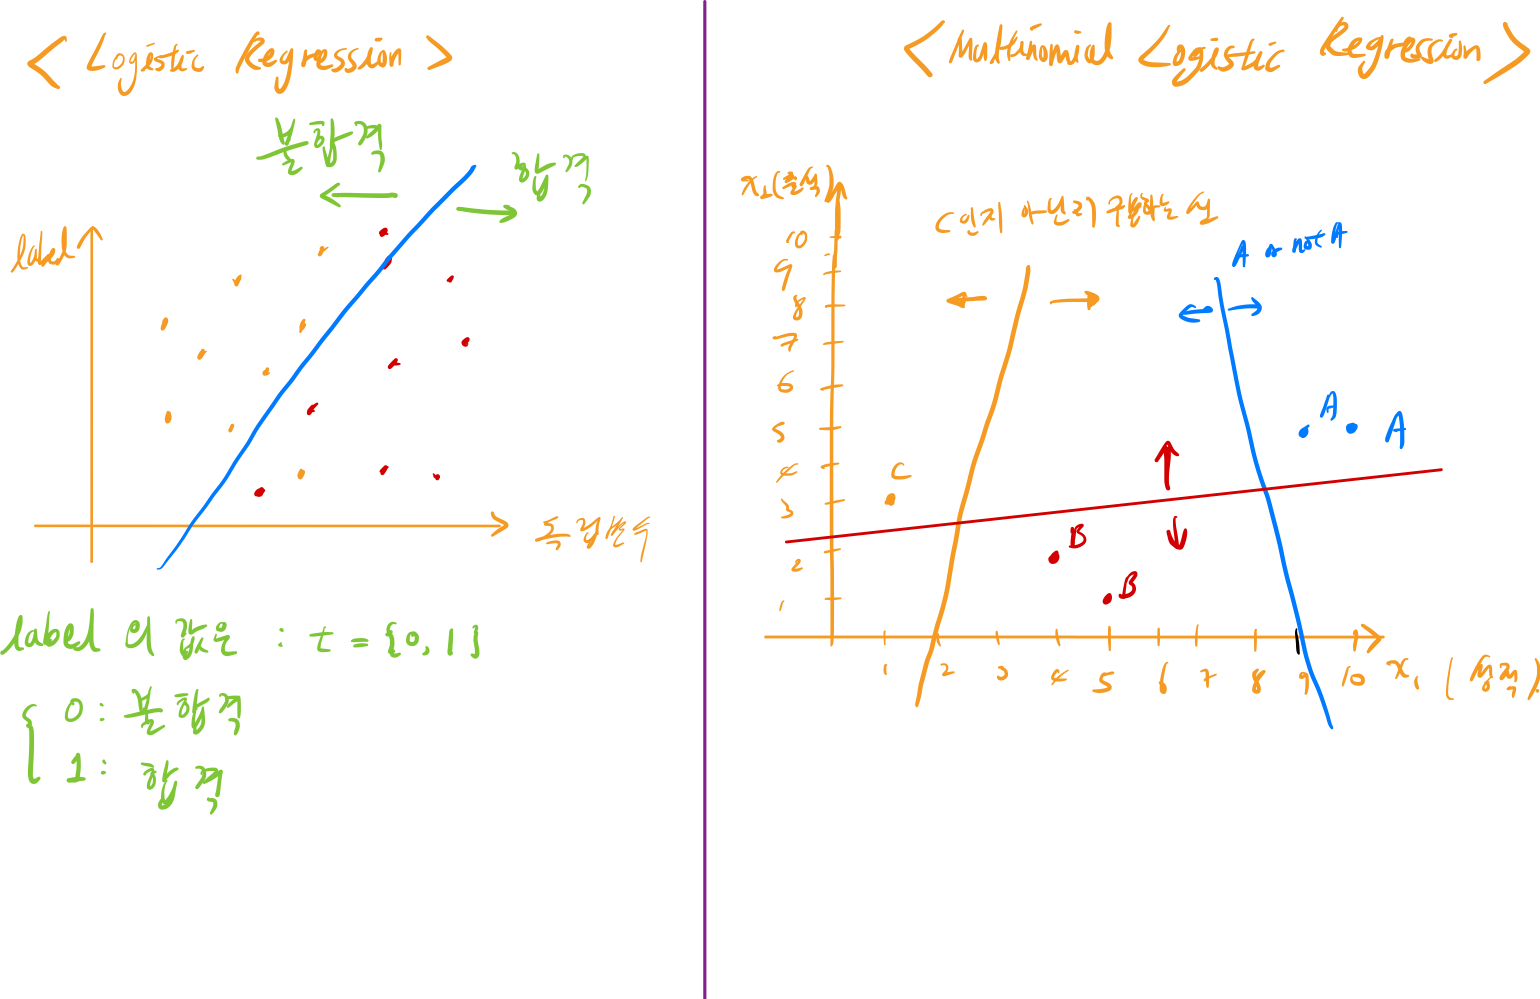 < Logistic Regression >
불합격
합격
label
독립변수
label 의 값은 : t = {0, 1}
0 : 불합격
1 : 합격
< Multinomial Logistic Regression >
x₂(출석)
C인지 아닌지 구분하는 선
A or not A
10
9
8
7
6
5
4
3
2
1
A
A
C
B
B
1 2 3 4 5 6 7 8 9 10 x₁ (성적)